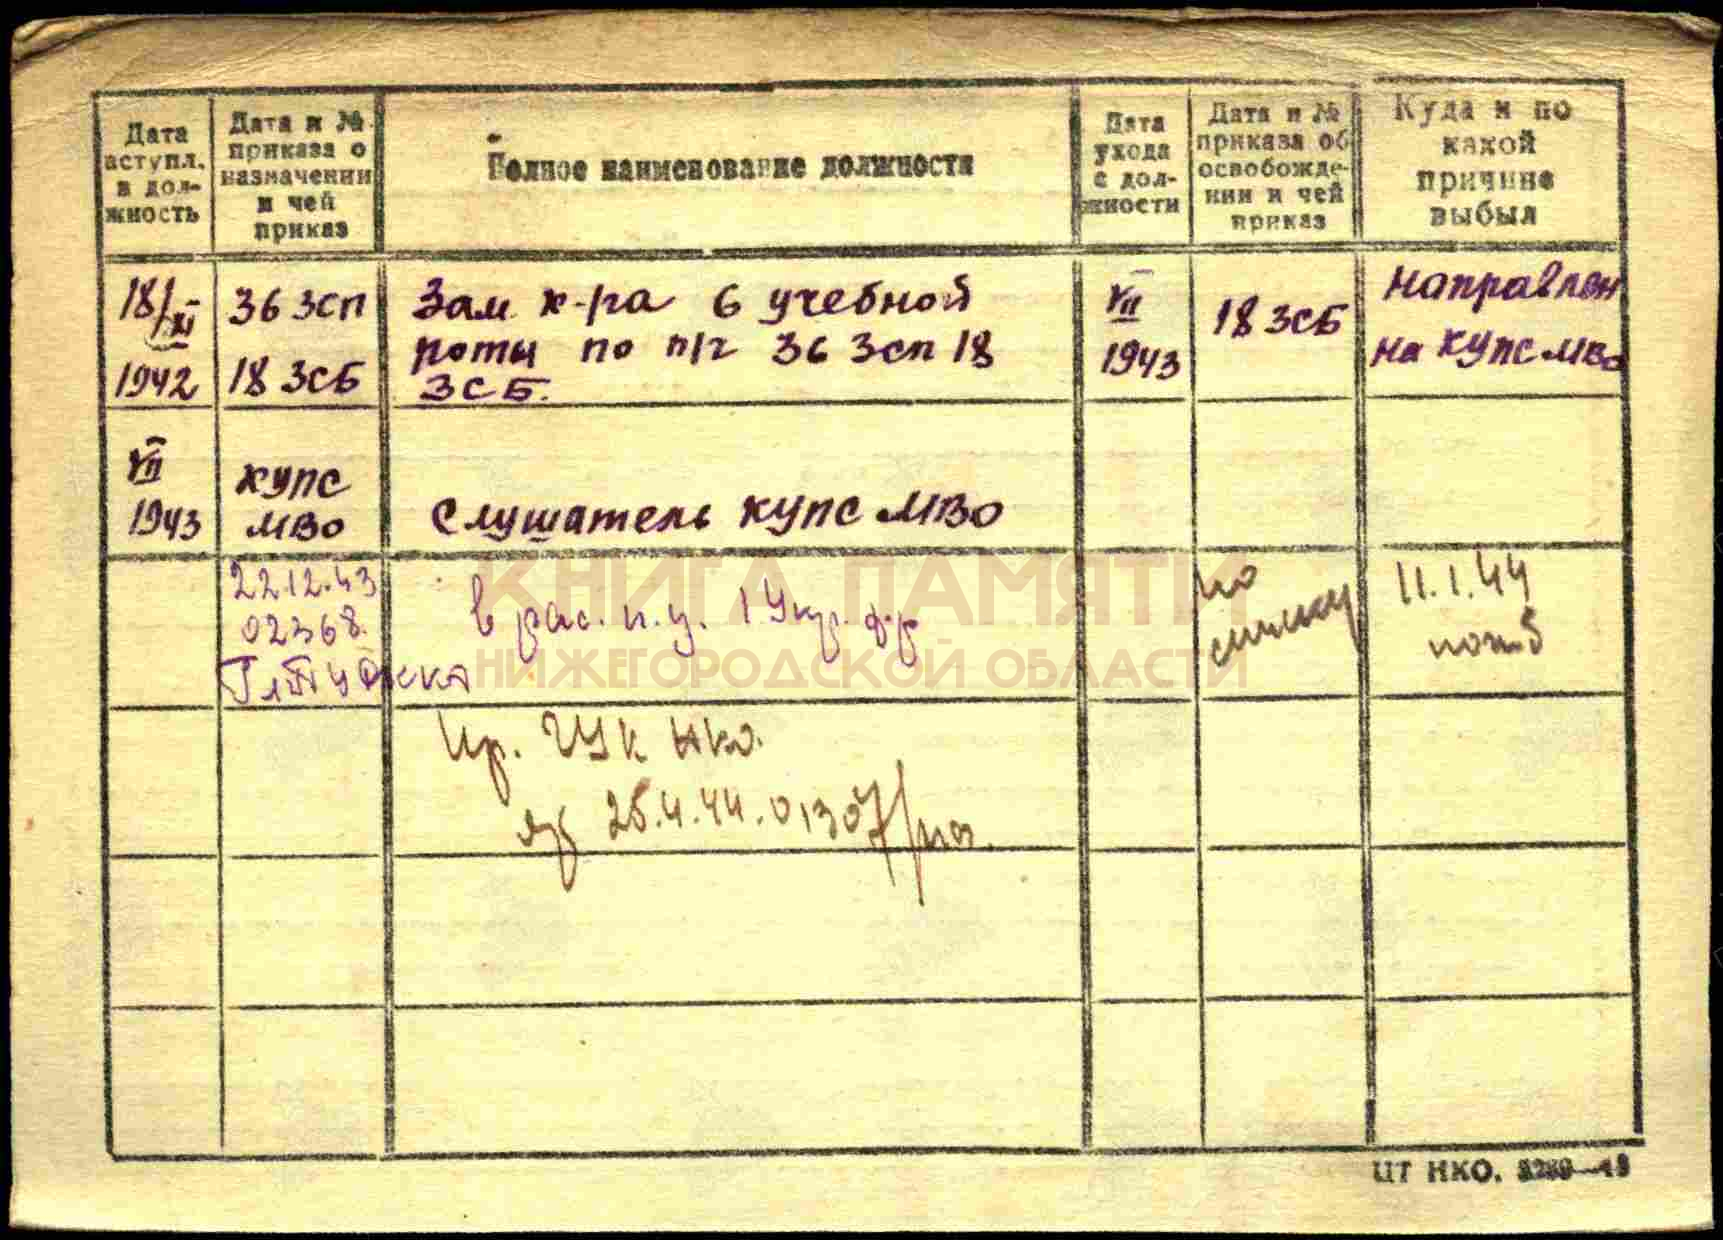 Дата
вступл.
в дол-
жность
Дата и №
приказа о
назначении
и чей
приказ
Полное наименование должности
Дата
ухода
с дол-
жности
Дата и №
приказа об
освобожде-
нии и чей
приказ
Куда и по
какой
причине
выбыл
18/XI
1942
36 ЗСП
18 ЗСБ
Зам. к-ра 6 учебной
роты по п/ч 36 Зсп 18
ЗСБ.
VII
1943
18 ЗСБ
Направлен
на КУПС МВО
VII
1943
КУПС
МВО
Слушатель КУПС МВО
22.12.43
02368.
в рас. п.у. 1 Укр. фр
по
списку
11.1.44
погиб
Пр. ГУК НКО.
25.4.44. 01307/
КНИГА ПАМЯТИ
НИЖЕГОРОДСКОЙ ОБЛАСТИ
ЦТ НКО.